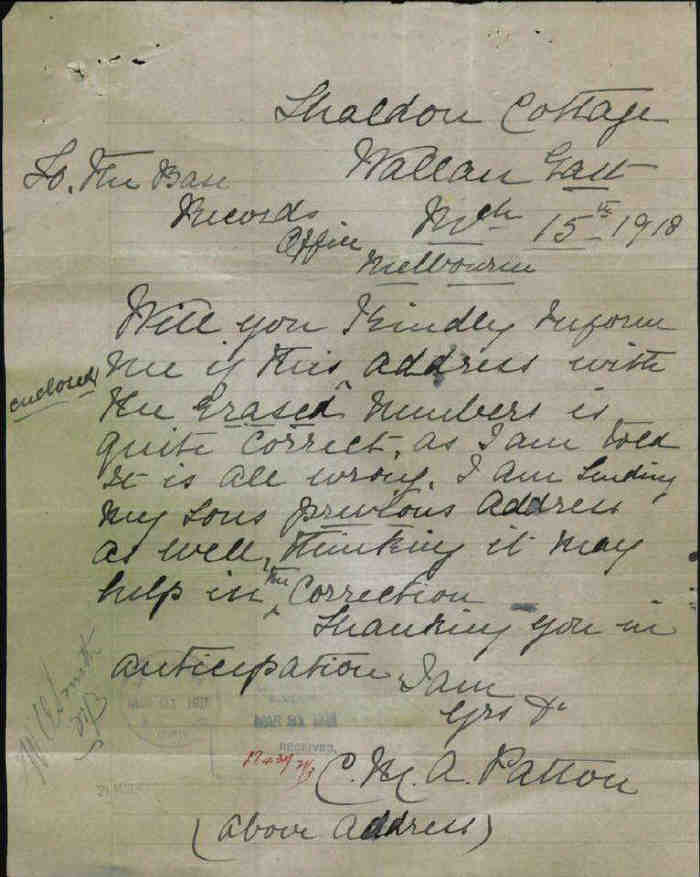 Shaldon Cottage
Wallan East
To, The Base
Records
Office
Mch 15th 1918
Melbourne
Will you Kindly Inform
me if this address with
enclosed
the Erased ^ Numbers is
quite correct, as I am told
it is all wrong. I am sending
my sons previous address
as well, thinking it may
help in the Correction
Thanking you in
anticipation I am
Yrs &c
RECEIVED
C. M. A. Patton
(above address)